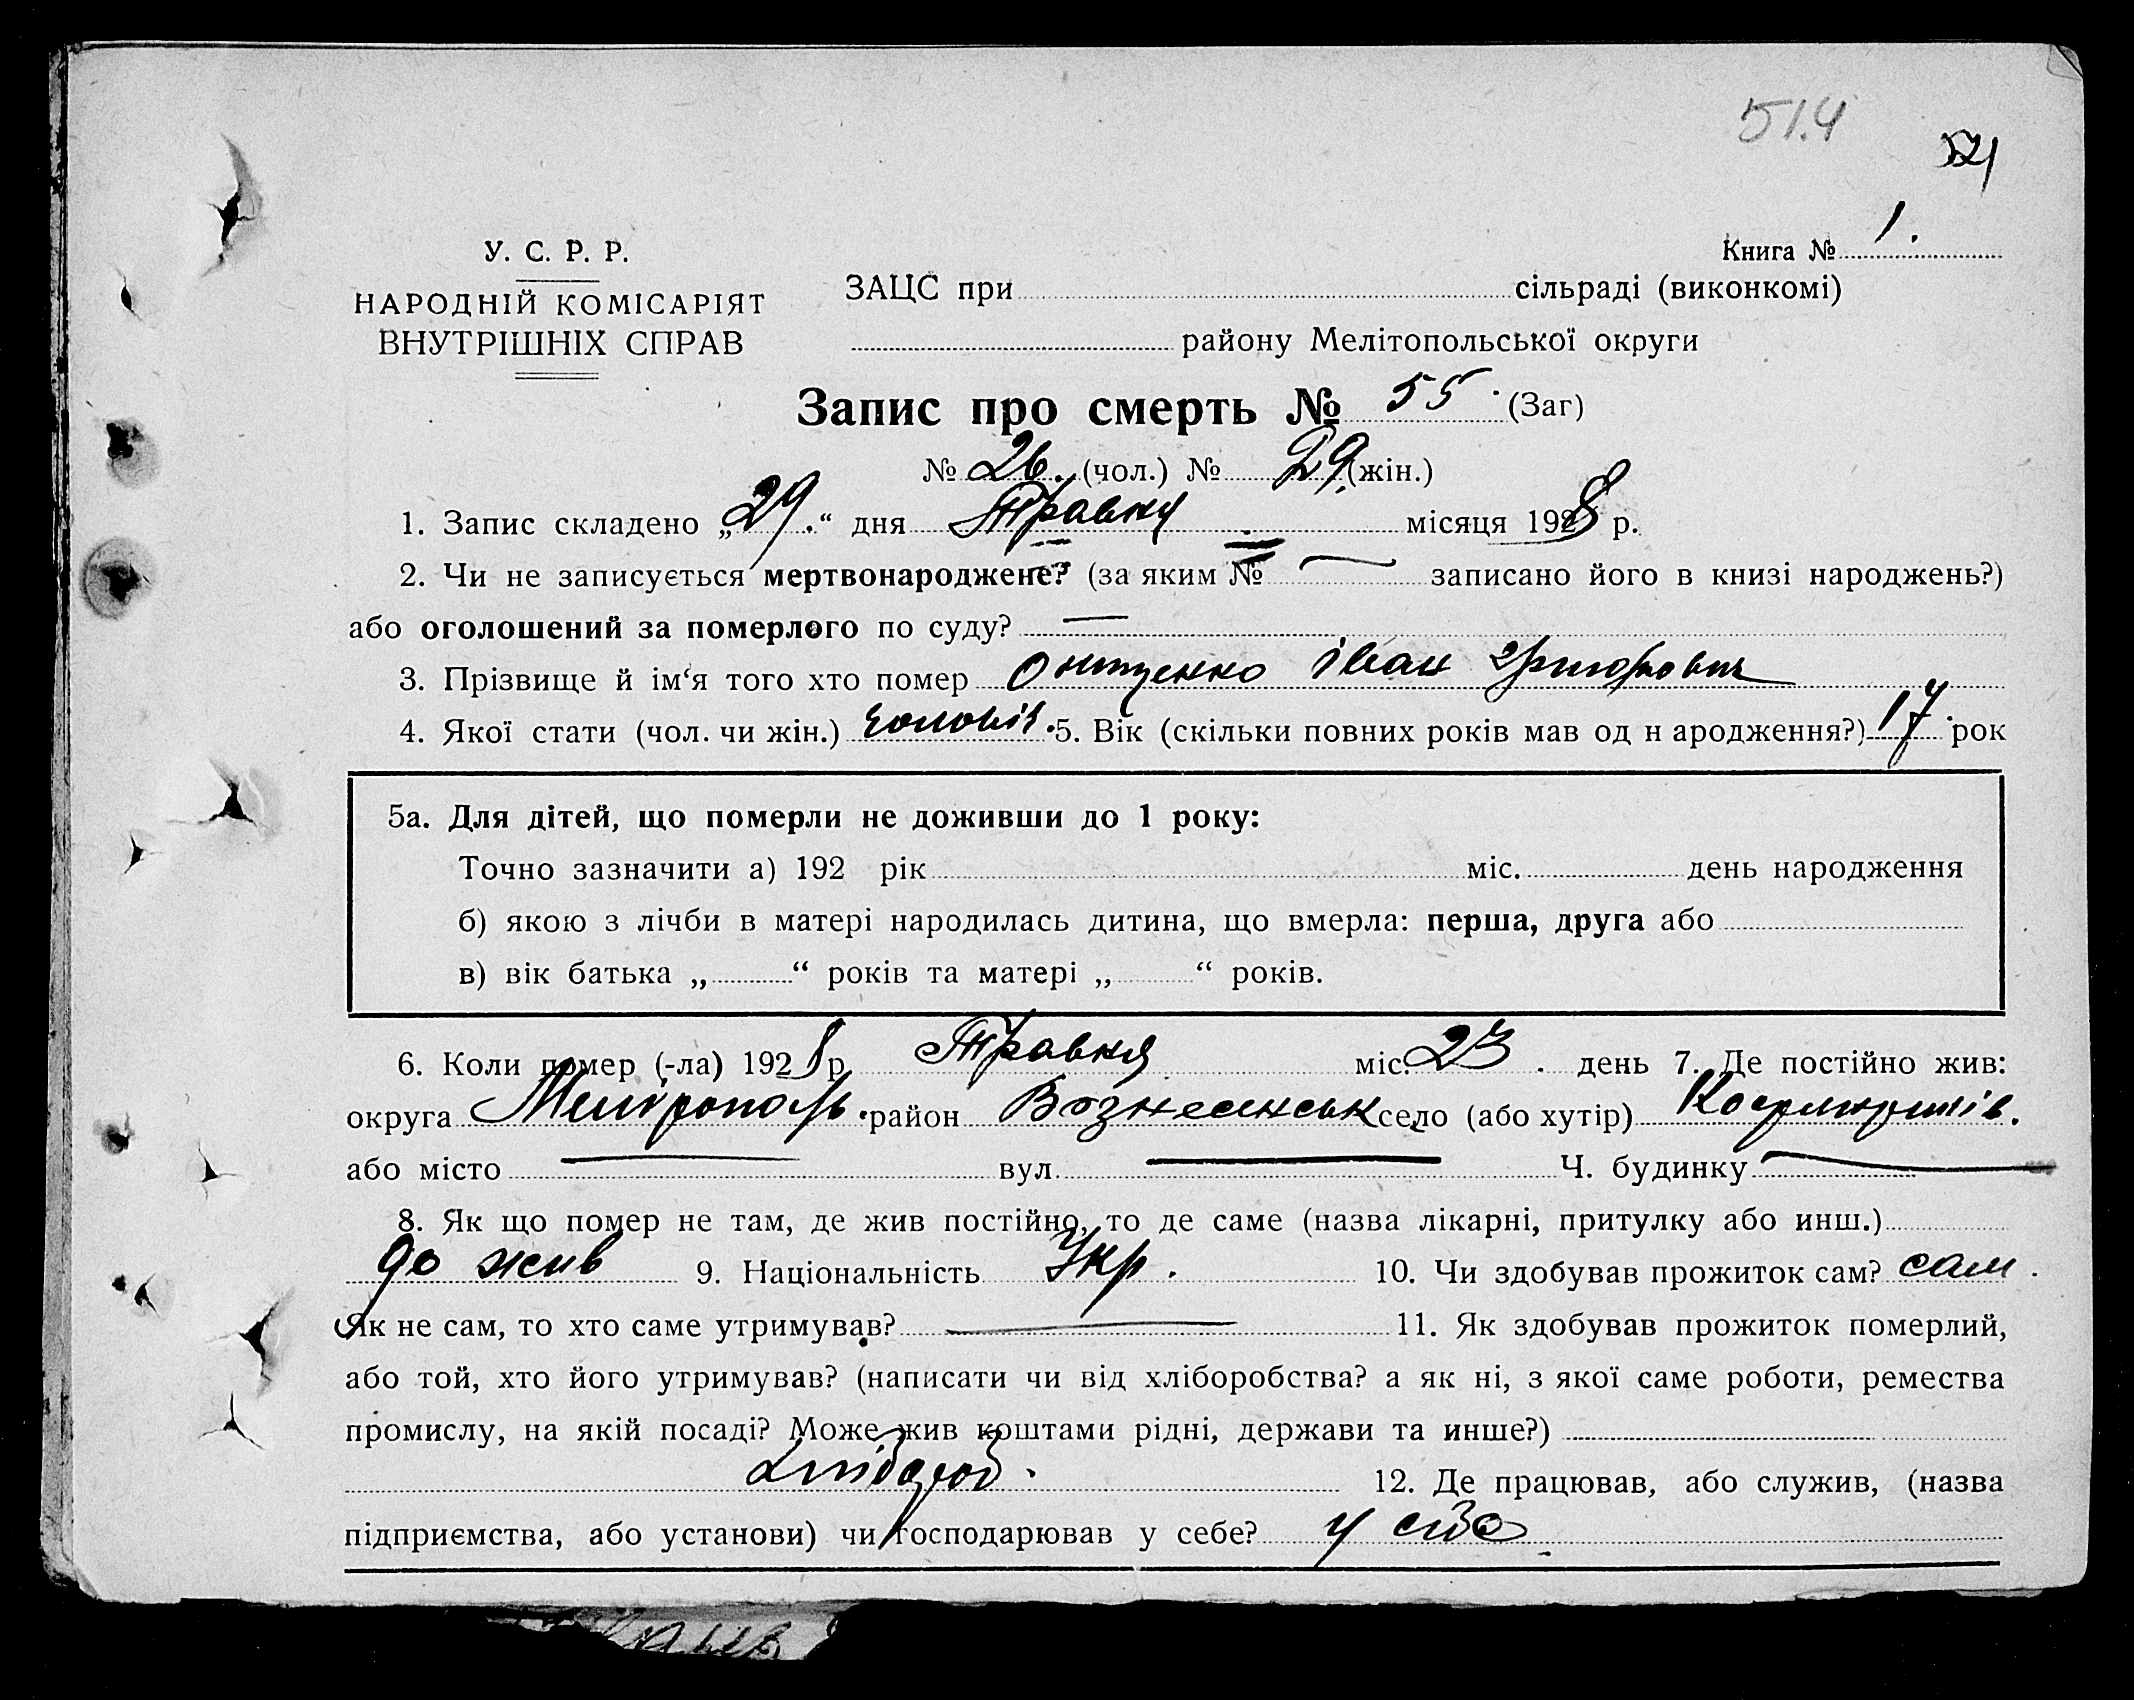 51.4
У. С. Р. Р.
Книга № 1.
НАРОДНІЙ КОМІСАРІЯТ
ВНУТРІШНІХ СПРАВ
ЗАЦС при сільраді (виконкомі)
району Мелітопольської округи
Запис про смерть № 55 (Заг)
№ 26. (чол.) № 29 (жін.)
1. Запис складено „29.“ дня Травня місяця 1928 р.
2. Чи не записується мертвонароджене? (за яким № — записано його в книзі народжень?)
або оголошений за померлого по суду? —
3. Прізвище й ім‘я того хто помер Онищенко Іван Григорович
4. Якої стати (чол. чи жін.) чоловік. 5. Вік (скільки повних років мав од н ародження?) 17 рок
5а. Для дітей, що померли не доживши до 1 року:
Точно зазначити а) 192 рік міс. день народження
б) якою з лічби в матері народилась дитина, що вмерла: перша, друга або
в) вік батька „ “ років та матері „ “ років.
6. Коли помер (-ла) 1928 р. Травня міс. 23 день 7. Де постійно жив:
округа Мелітополь. район Вознесенськ село (або хутір)
або місто — вул. — Ч. будинку —
8. Як що помер не там, де жив постійно, то де саме (назва лікарні, притулку або инш.)
де жив 9. Національність Укр. 10. Чи здобував прожиток сам? сам.
Як не сам, то хто саме утримував? — 11. Як здобував прожиток померлий,
або той, хто його утримував? (написати чи від хліборобства? а як ні, з якої саме роботи, ремества
промислу, на якій посаді? Може жив коштами рідні, держави та инше?)
Хлібороб. 12. Де працював, або служив, (назва
підприємства, або установи) чи господарював у себе? у себе